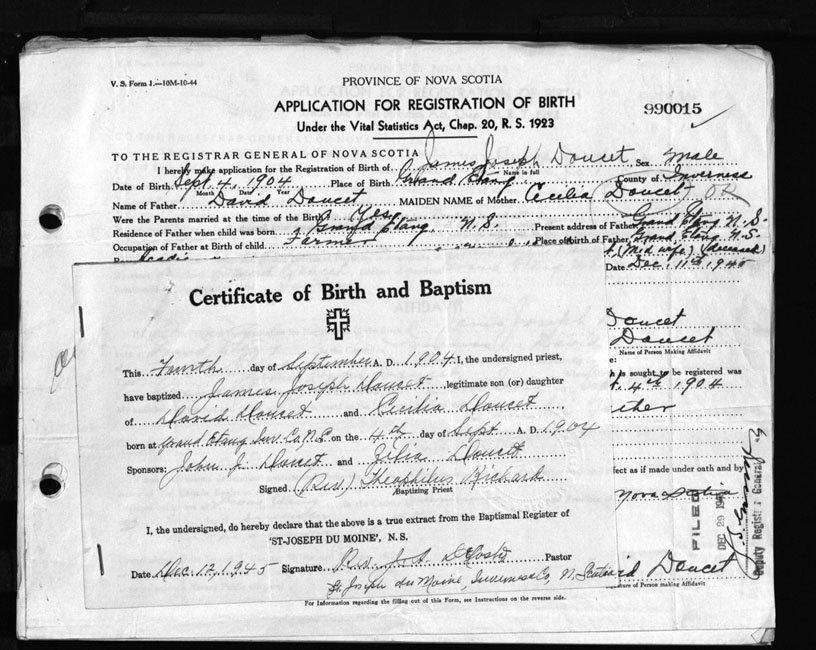 V. S. Form 1.—10M-10-44
PROVINCE OF NOVA SCOTIA
APPLICATION FOR REGISTRATION OF BIRTH
990015
Under the Vital Statistics Act, Chap. 20, R. S. 1923
TO THE REGISTRAR GENERAL OF NOVA SCOTIA
I hereby make application for the Registration of Birth of James Joseph Doucet Sex Male
Name in full
Date of Birth Sept 4, 1904 Place of Birth Grand Etang County of Inverness
Month Date Year
Name of Father David Doucet MAIDEN NAME of Mother Cecilia Doucet OK
Were the Parents married at the time of the Birth Yes
Residence of Father when child was born Grand Etang N. S. Present address of Father Grand Etang N. S.
Occupation of Father at Birth of child Farmer Place of Birth of Father Grand Etang N. S.
Acadia
(Mid wife) (deceased)
Date Dec. 11th 1945
Certificate of Birth and Baptism
This Fourth day of September A. D. 1904 I, the undersigned priest,
have baptized James Joseph Doucet, legitimate son (or) daughter
of David Doucet and Cecilia Doucet,
born at Grand Etang Inv. Co. N. S. on the 4th day of Sept A. D. 1904
Sponsors: John J. Doucet and Zilia Doucet
Signed (Rev) Theophilus Richard
Baptizing Priest
I, the undersigned, do hereby declare that the above is a true extract from the Baptismal Register of
'ST-JOSEPH DU MOINE', N. S.
Date Dec. 12, 1945 Signature Rev. J. A. DeCoste Pastor
St. Joseph du Moine, Inverness Co, N. Scotia
Doucet
Doucet
Name of Person Making Affidavit
h is sought to be registered was
4th 1904
ther
ffect as if made under oath and by
Nova Scotia
FILED
DEC 29 194
Deputy Registrar General
id Doucet
ature of Person Making Affidavit
For Information regarding the filling out of this Form, see Instructions on the reverse side.